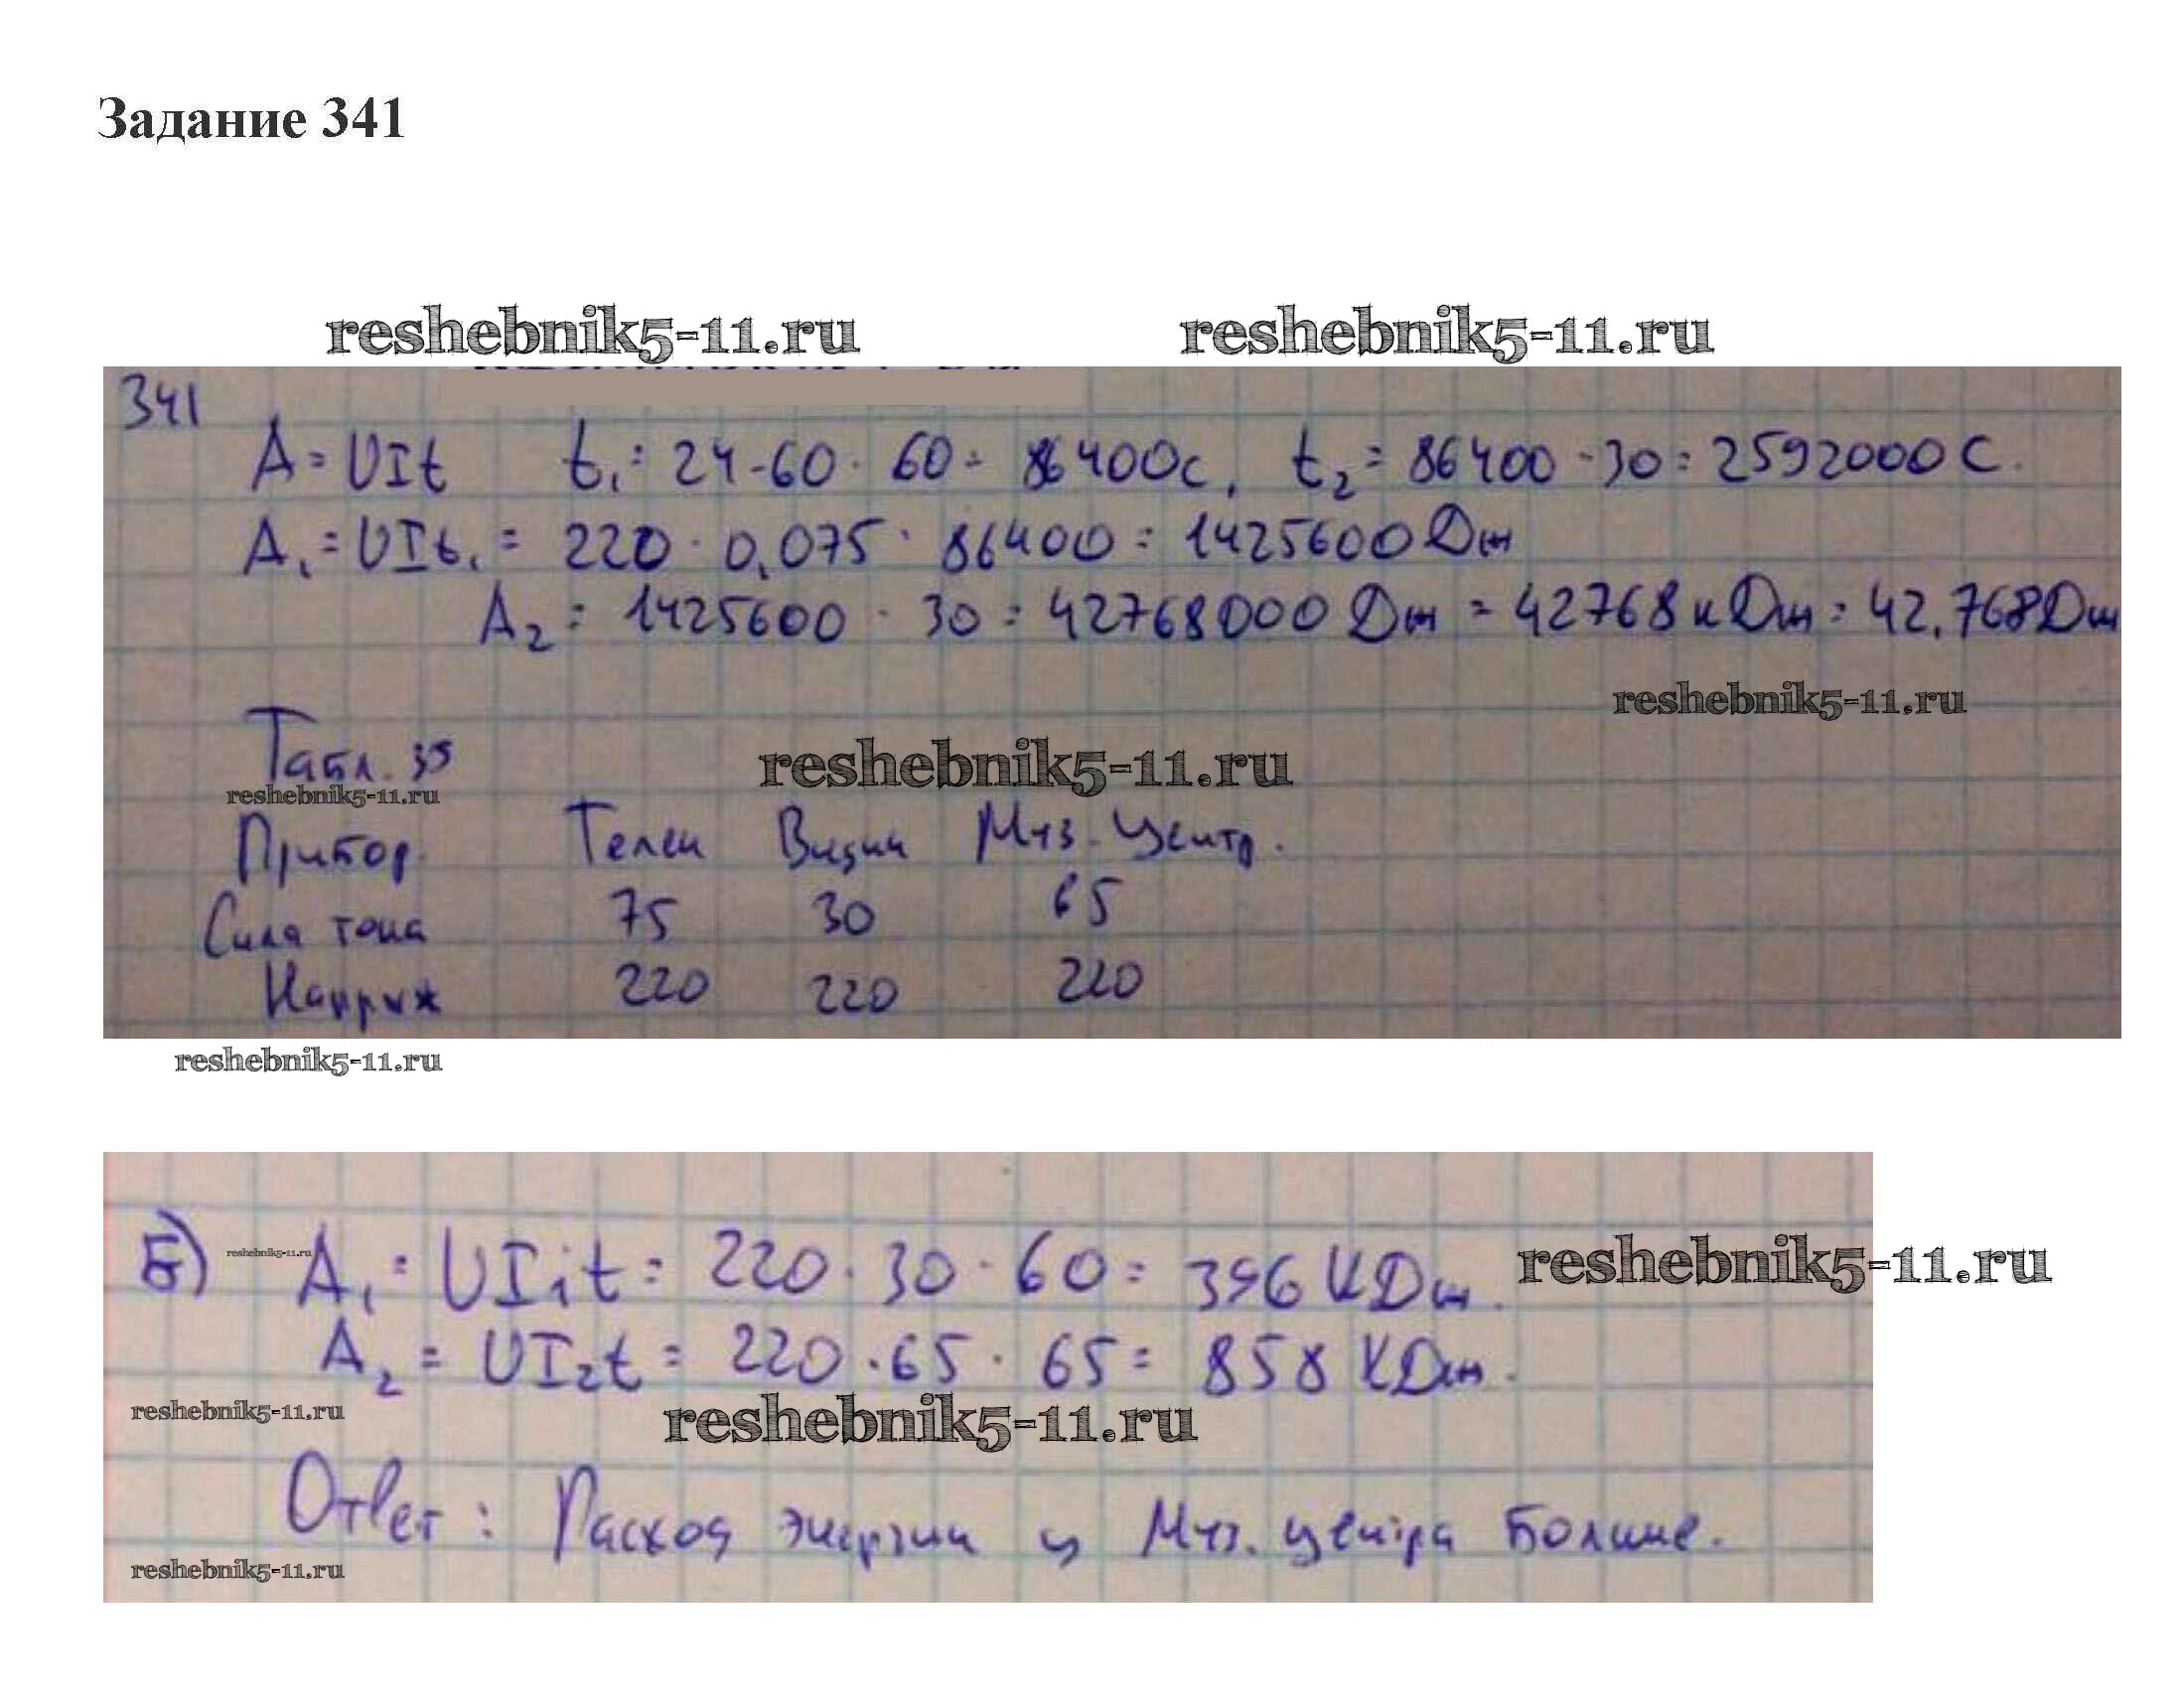 Задание 341
reshebnik5-11.ru reshebnik5-11.ru
341
A = UIt t₁ = 24 · 60 · 60 = 86400с, t₂ = 86400 · 30 = 2592000 С.
A₁ = UIt₁ = 220 · 0,075 · 86400 = 1425600 Дж
A₂ = 1425600 · 30 = 42768000 Дж = 42768 кДж = 42,768Дж
reshebnik5-11.ru
Табл. 39
reshebnik5-11.ru
reshebnik5-11.ru
Прибор Телеи Видии Муз. Центр.
Сила тока 75 30 65
Напряж 220 220 220
reshebnik5-11.ru
Б) reshebnik5-11.ru A₁ = UI₁t = 220 · 30 · 60 = 396 КДж. reshebnik5-11.ru
A₂ = UI₂t = 220 · 65 · 65 = 858 КДж.
reshebnik5-11.ru reshebnik5-11.ru
Ответ: Расход энергии у Муз. центра Больше.
reshebnik5-11.ru